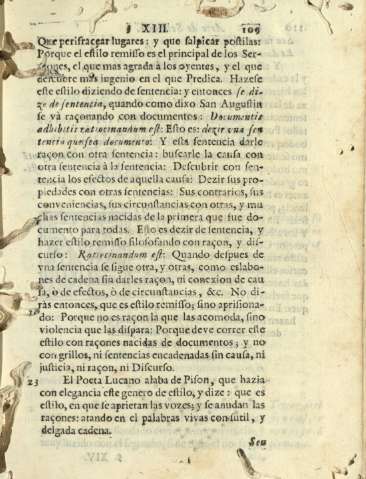 § XIII. 109
Que perifracear lugares: y que salpicar postilas:
Porque el estilo remisso es el principal de los Ser-
mones, el que mas agrada à los oyentes, y el que
descubre mas ingenio en el que Predica. Hazese
este estilo diziendo de sentencia: y entonces se di-
ze de sentencia, quando como dixo San Augustin
se và raçonando con documentos: Documentis
adhibitis ratiocinandum est: Esto es: dezir una sen
tencia que sea documento: Y esta sentencia darle
raçon con otra sentencia: buscarle la causa con
otra sentencia à la sentencia: Descubrir con sen-
tencia los efectos de aquella causa: Dezir sus pro-
piedades con otras sentencias: Sus contrarios, sus
conveniencias, sus circunstancias con otras, y mu
chas sentencias nacidas de la primera que fue do-
cumento para todas. Esto es dezir de sentencia, y
hazer estilo remisso filosofando con raçon, y dis-
curso: Ratiocinandum est: Quando despues de
vna sentencia se sigue otra, y otras, como eslabo-
nes de cadena sin darles raçon, ni conexion de cau
sa, ò de efectos, ò de circunstancias, &c. No di-
ràs entonces, que es estilo remisso; sino aprisiona-
do: Porque no es raçon la que las acomoda, sino
violencia que las dispara: Porque deve correr este
estilo con raçones nacidas de documentos; y no
con grillos, ni sentencias encadenadas sin causa, ni
justicia, ni raçon, ni Discurso.
23 El Poeta Lucano alaba de Pison, que hazia
con elegancia este genero de estilo, y dize: que es
estilo, en que se aprietan las vozes; y se anudan las
raçones: atando en el palabras vivas con sutil, y
delgada cadena.
Seu